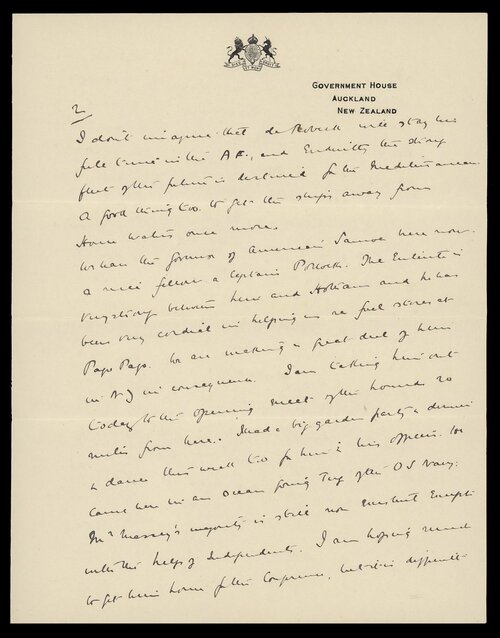 GOVERNMENT HOUSE
AUCKLAND
NEW ZEALAND
2/
I don't imagine that de Robeck will stay his
full time in the A.F., and evidently the strong
fleet of the future is destined for the Mediterranean
A good thing too to get the ships away from
Home waters once more.
We have the governor of American Samoa here now.
a nice fellow a Captain Pollock. The Entente is
very strong between here and and he has
been very cordial in helping us re fuel stores at
Pago Pago. We are making a great deal of him
in N.Z in consequence. I am taking him out
today to the opening meet of the hounds 20
miles from here. I had a big garden party a dinner
& dance this week too for him & his officers. He
came here in an Ocean going Tug of the U S Navy.
Mr Massey's majority is still non existent except
with the help of Independents. I am hoping
to get him home for the Conference, but it is difficult